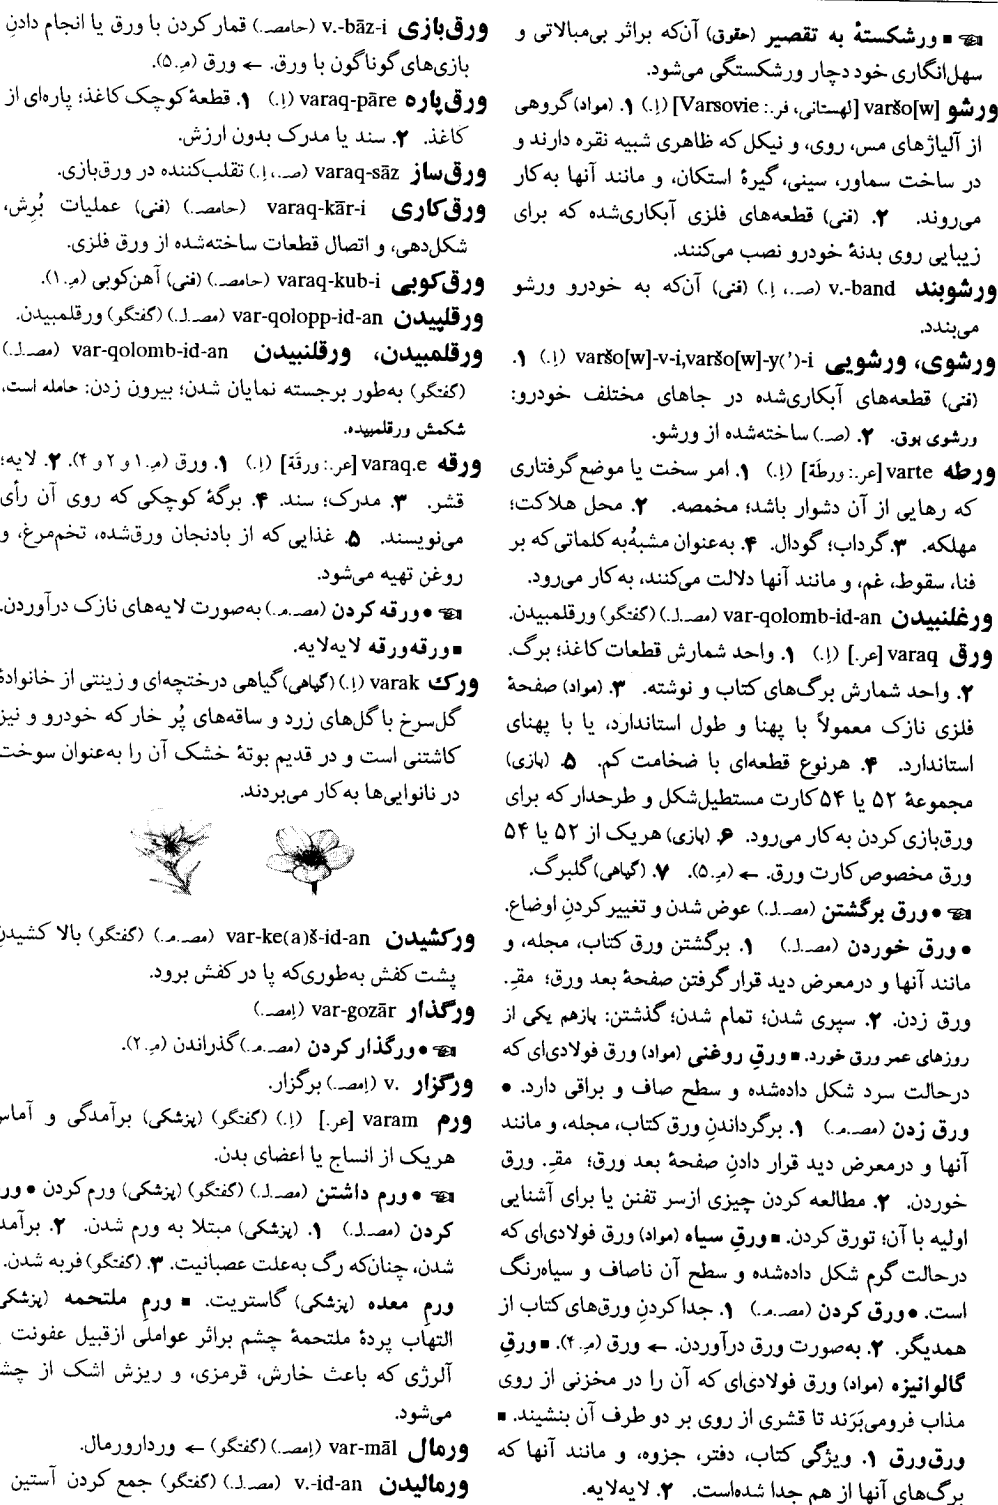 ■ ورشکستهٔ به تقصیر (حقوق) آن‌که براثر بی‌مبالاتی و
سهل‌انگاری خود دچار ورشکستگی می‌شود.
ورشو varšo[w] [لهستانی، فر.: Varsovie] (اِ.) ۱. (مواد) گروهی
از آلیاژهای مس، روی، و نیکل که ظاهری شبیه نقره دارند و
در ساخت سماور، سینی، گیرهٔ استکان، و مانند آنها به‌کار
می‌روند. ۲. (فنی) قطعه‌های فلزی آبکاری‌شده که برای
زیبایی روی بدنهٔ خودرو نصب می‌کنند.
ورشوبند v.-band (صـ.، اِ.) (فنی) آن‌که به خودرو ورشو
می‌بندد.
ورشوی، ورشویی varšo[w]-v-i,varšo[w]-y(')-i (اِ.) ۱.
(فنی) قطعه‌های آبکاری‌شده در جاهای مختلف خودرو:
ورشوی بوق. ۲. (صـ.) ساخته‌شده از ورشو.
ورطه varte [عر.: ورطَة] (اِ.) ۱. امر سخت یا موضع گرفتاری
که رهایی از آن دشوار باشد؛ مخمصه. ۲. محل هلاکت؛
مهلکه. ۳. گرداب؛ گودال. ۴. به‌عنوان مشبهٌ‌به کلماتی که بر
فنا، سقوط، غم، و مانند آنها دلالت می‌کنند، به‌کار می‌رود.
ورغلنبیدن var-qolomb-id-an (مصـ.لـ.) (گفتگو) ورقلمبیدن.
ورق varaq [عر.] (اِ.) ۱. واحد شمارش قطعات کاغذ؛ برگ.
۲. واحد شمارش برگ‌های کتاب و نوشته. ۳. (مواد) صفحهٔ
فلزی نازک معمولاً با پهنا و طول استاندارد، یا با پهنای
استاندارد. ۴. هرنوع قطعه‌ای با ضخامت کم. ۵. (بازی)
مجموعهٔ ۵۲ یا ۵۴ کارت مستطیل‌شکل و طرحدار که برای
ورق‌بازی کردن به‌کار می‌رود. ۶. (بازی) هریک از ۵۲ یا ۵۴
ورق مخصوص کارت ورق. ← (مِـ.۵). ۷. (گیاهی) گلبرگ.
● ورق برگشتن (مصـ.لـ.) عوض شدن و تغییر کردنِ اوضاع.
● ورق خوردن (مصـ.لـ.) ۱. برگشتن ورق کتاب، مجله، و
مانند آنها و درمعرض دید قرار گرفتن صفحهٔ بعد ورق؛ مقـِ.
ورق زدن. ۲. سپری شدن؛ تمام شدن؛ گذشتن: بازهم یکی از
روزهای عمر ورق خورد. ■ ورقِ روغنی (مواد) ورق فولادی‌ای که
درحالت سرد شکل داده‌شده و سطح صاف و براقی دارد. ●
ورق زدن (مصـ.مـ.) ۱. برگرداندنِ ورق کتاب، مجله، و مانند
آنها و درمعرض دید قرار دادنِ صفحهٔ بعد ورق؛ مقـِ. ورق
خوردن. ۲. مطالعه کردن چیزی ازسر تفنن یا برای آشنایی
اولیه با آن؛ تورق کردن. ■ ورقِ سیاه (مواد) ورق فولادی‌ای که
درحالت گرم شکل داده‌شده و سطح آن ناصاف و سیاه‌رنگ
است. ● ورق کردن (مصـ.مـ.) ۱. جداکردنِ ورق‌های کتاب از
همدیگر. ۲. به‌صورت ورق درآوردن. ← ورق (مِـ.۴). ■ ورقِ
گالوانیزه (مواد) ورق فولادی‌ای که آن را در مخزنی از روی
مذاب فرومی‌بَرَند تا قشری از روی بر دو طرف آن بنشیند. ■
ورق‌ورق ۱. ویژگی کتاب، دفتر، جزوه، و مانند آنها که
برگ‌های آنها از هم جدا شده‌است. ۲. لایه‌لایه.
ورق‌بازی v.-bāz-i (حامصـ.) قمار کردن با ورق یا انجام دادنِ
بازی‌های گوناگون با ورق. ← ورق (مِـ.۵).
ورق‌پاره varaq-pāre (اِ.) ۱. قطعهٔ کوچک کاغذ؛ پاره‌ای از
کاغذ. ۲. سند یا مدرک بدون ارزش.
ورق‌ساز varaq-sāz (صـ.، اِ.) تقلب‌کننده در ورق‌بازی.
ورق‌کاری varaq-kār-i (حامصـ.) (فنی) عملیات بُرِش،
شکل‌دهی، و اتصال قطعات ساخته‌شده از ورق فلزی.
ورق‌کوبی varaq-kub-i (حامصـ.) (فنی) آهن‌کوبی (مِـ.۱).
ورقلپیدن var-qolopp-id-an (مصـ.لـ.) (گفتگو) ورقلمبیدن.
ورقلمبیدن، ورقلنبیدن var-qolomb-id-an (مصـ.لـ.)
(گفتگو) به‌طور برجسته نمایان شدن؛ بیرون زدن: حامله است،
شکمش ورقلمبیده.
ورقه varaq.e [عر.: ورقَة] (اِ.) ۱. ورق (مِـ.۱ و ۲ و ۴). ۲. لایه؛
قشر. ۳. مدرک؛ سند. ۴. برگهٔ کوچکی که روی آن رأی
می‌نویسند. ۵. غذایی که از بادنجان ورق‌شده، تخم‌مرغ، و
روغن تهیه می‌شود.
● ورقه کردن (مصـ.مـ.) به‌صورت لایه‌های نازک درآوردن.
■ ورقه‌ورقه لایه‌لایه.
ورک varak (اِ.) (گیاهی) گیاهی درختچه‌ای و زینتی از خانوادهٔ
گل‌سرخ با گل‌های زرد و ساقه‌های پُر خار که خودرو و نیز
کاشتنی است و در قدیم بوتهٔ خشک آن را به‌عنوان سوخت
در نانوایی‌ها به‌کار می‌بردند.
ورکشیدن var-ke(a)š-id-an (مصـ.مـ.) (گفتگو) بالا کشیدنِ
پشت کفش به‌طوری‌که پا در کفش برود.
ورگذار var-gozār (اِمصـ.)
● ورگذار کردن (مصـ.مـ.) گذراندن (مِـ.۲).
ورگزار v. (اِمصـ.) برگزار.
ورم varam [عر.] (اِ.) (گفتگو) (پزشکی) برآمدگی و آماس
هریک از انساج یا اعضای بدن.
● ورم داشتن (مصـ.لـ.) (گفتگو) (پزشکی) ورم کردن ● ور
کردن (مصـ.لـ.) ۱. (پزشکی) مبتلا به ورم شدن. ۲. برآمد
شدن، چنان‌که رگ به‌علت عصبانیت. ۳. (گفتگو) فربه شدن.
ورمِ معده (پزشکی) گاستریت. ■ ورمِ ملتحمه (پزشکی
التهاب پردهٔ ملتحمهٔ چشم براثر عواملی ازقبیل عفونت
آلرژی که باعث خارش، قرمزی، و ریزش اشک از چش
می‌شود.
ورمال var-māl (اِمصـ.) (گفتگو) ← وردارورمال.
ورمالیدن v.-id-an (مصـ.لـ.) (گفتگو) جمع کردن آستین